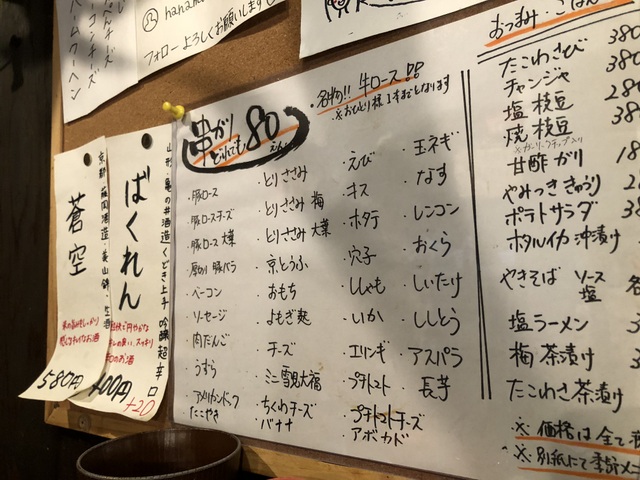 hanamo
フォローよろしくお願いします
コーンチーズ
バームクーヘン
蒼空
京都・藤岡酒造・美山錦・生酒
580円
ばくれん
山形・亀の井酒造くどき上手 吟醸超辛口
400円
+20
串かり
どれでも
80
えん
・名物!! 牛ロース!!
※おひとり様1本までとなります
・豚ロース
・豚ロースチーズ
・豚ロース 大葉
・厚切り 豚バラ
・ベーコン
・ソーセージ
・肉だんご
・うずら
・アメリカンドック
・たこやき
・とりささみ
・とりささみ 梅
・とりささみ 大葉
・京とうふ
・おもち
・よもぎ麩
・チーズ
・ミニ雪見大福
・ちくわチーズ
・バナナ
・えび
・キス
・ホタテ
・穴子
・ししゃも
・いか
・エリンギ
・プチトマト
・プチトマトチーズ
・アボカド
・玉ネギ
・なす
・レンコン
・おくら
・しいたけ
・ししとう
・アスパラ
・長芋
おつまみ・ごはん
たこわさび 380
チャンジャ 380
塩 枝豆 280
焼 枝豆 38
甘酢 ガリ 18
やみつき きゅうり
ポテトサラダ
ホタルイカ 沖漬け
やきそば ソース
塩
塩ラーメン
梅 茶漬け
たこわさ茶漬け
※ 価格は全て
※ 別紙にて季節メニ